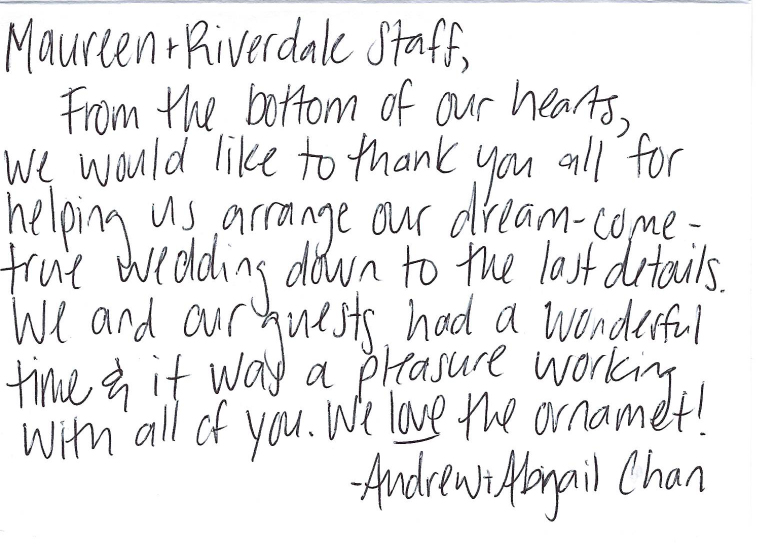 Maureen + Riverdale Staff,
From the bottom of our hearts,
we would like to thank you all for
helping us arrange our dream-come-
true wedding down to the last details.
We and our guests had a wonderful
time & it was a pleasure working
with all of you. We love the ornamet!
-Andrew + Abigail Chan